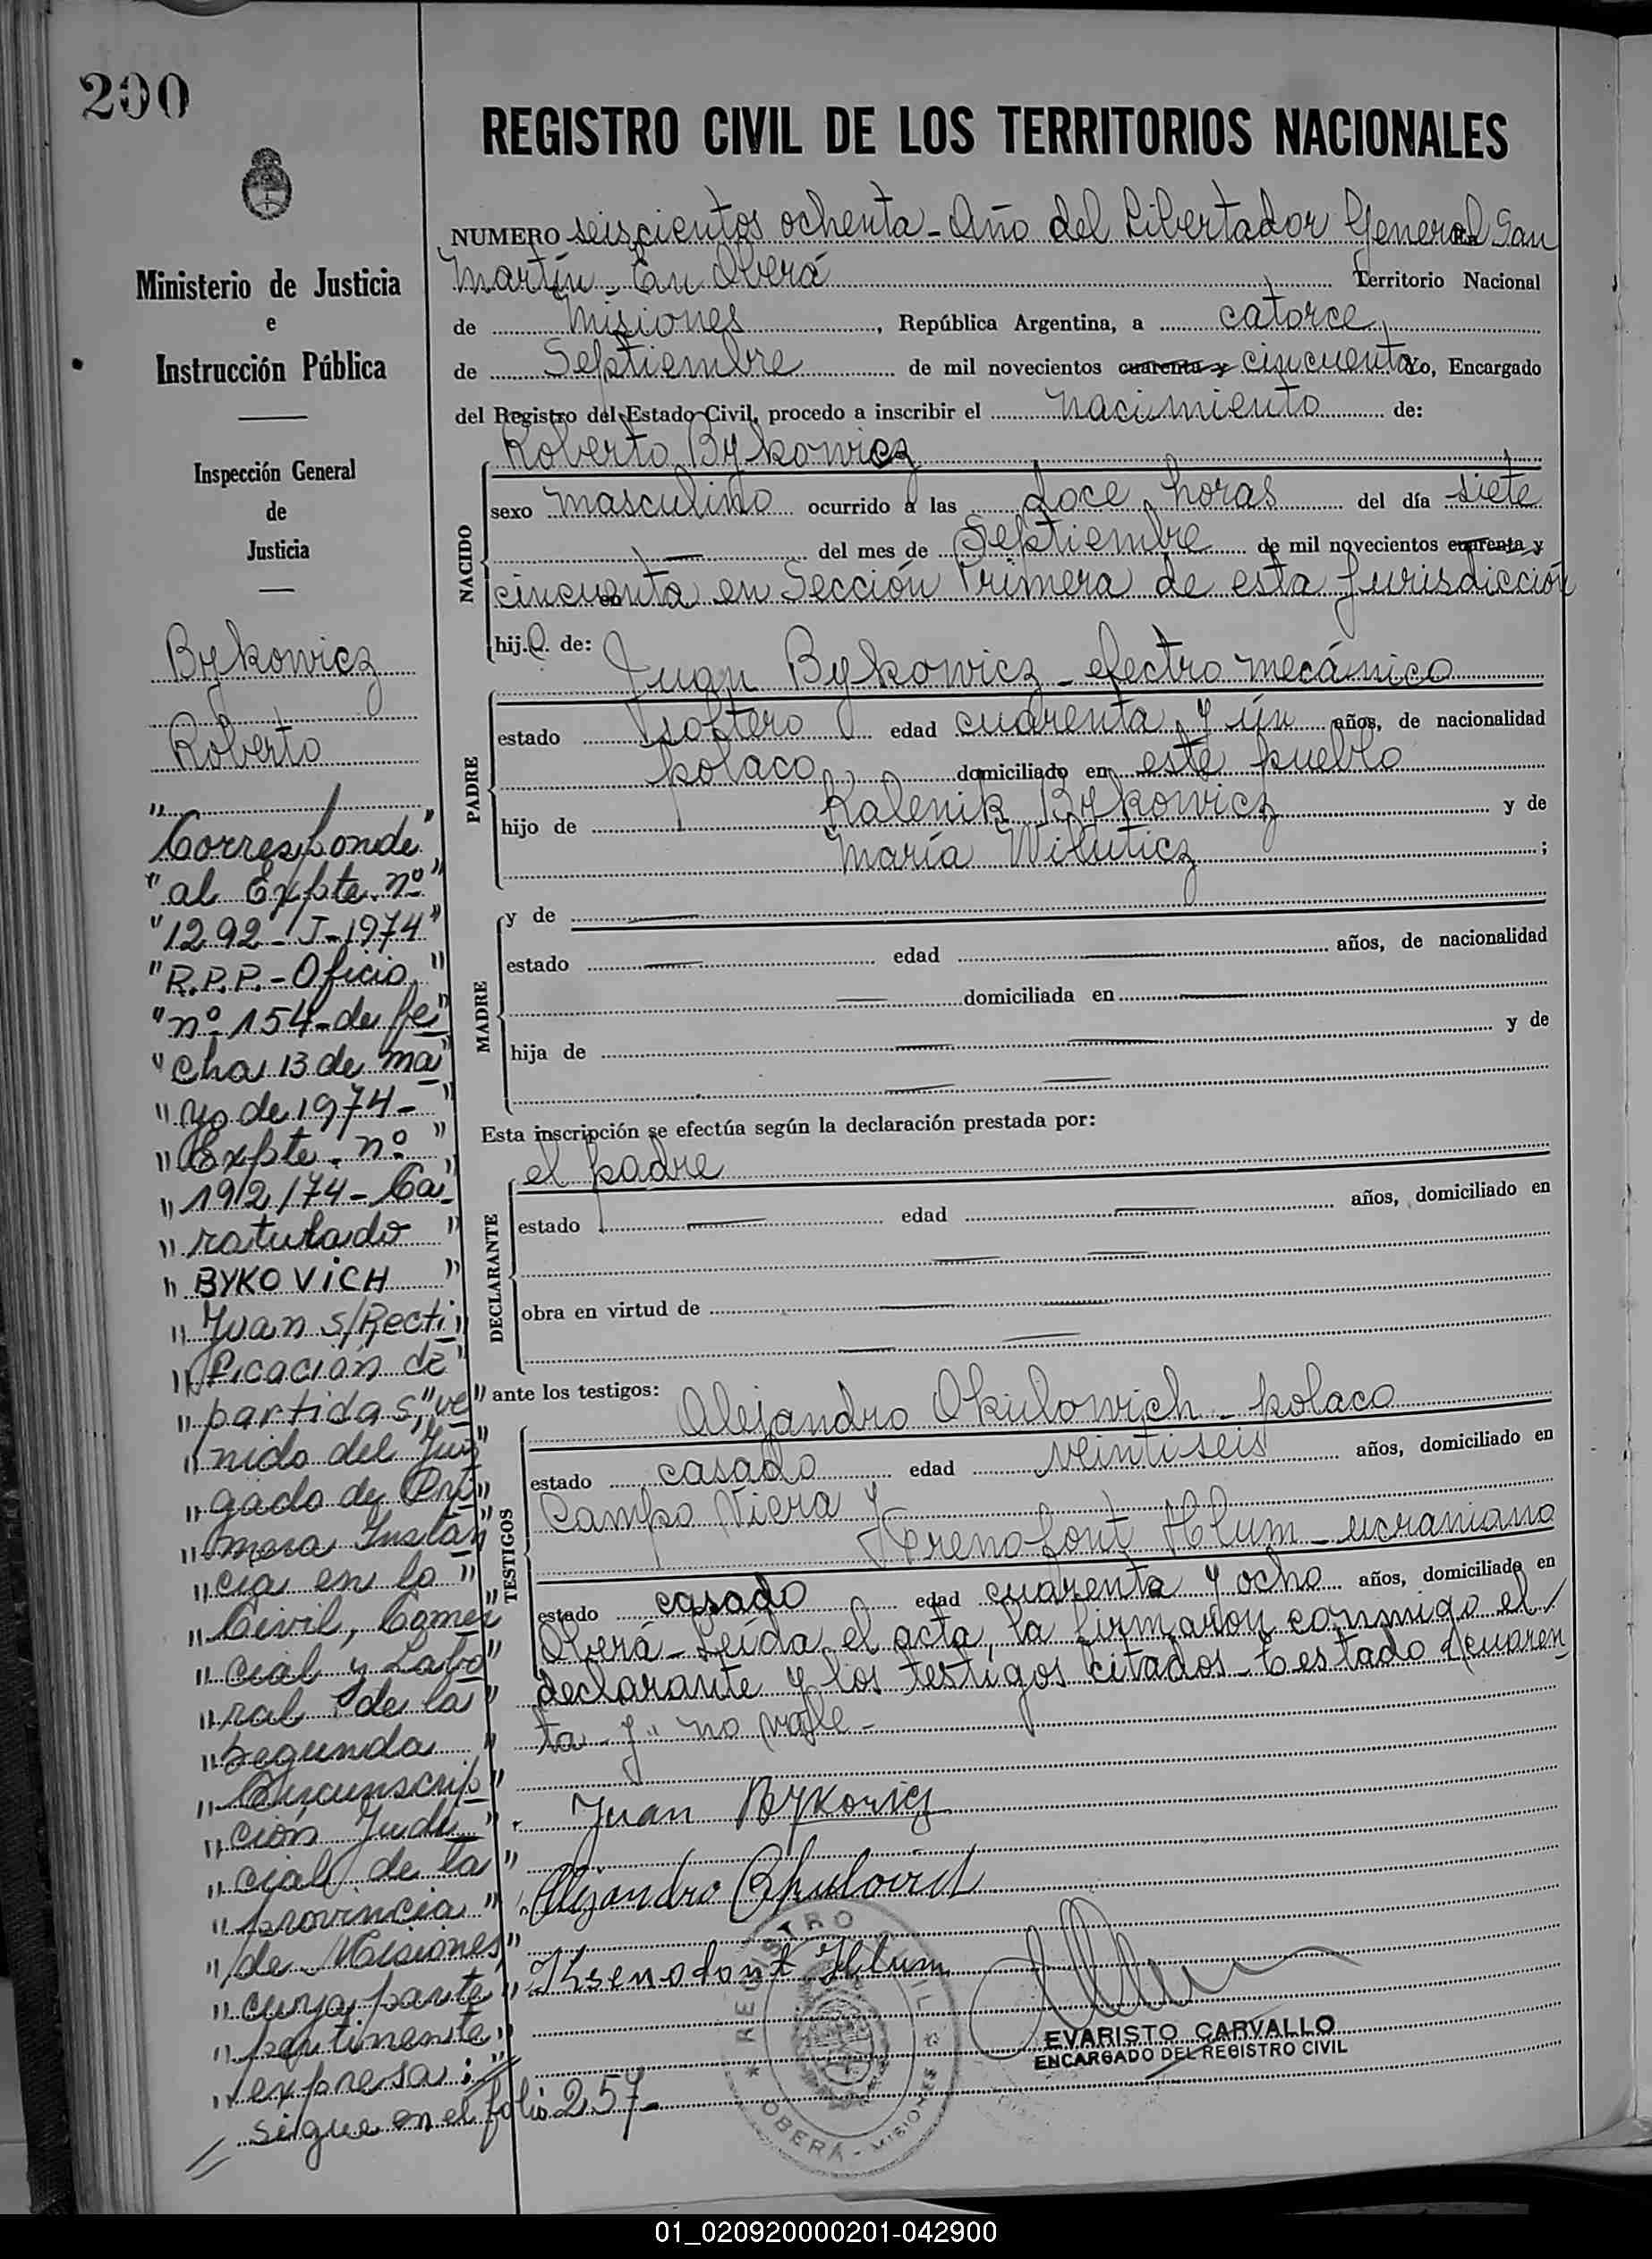 200
REGISTRO CIVIL DE LOS TERRITORIOS NACIONALES
Ministerio de Justicia
e
Instrucción Pública
Inspección General
de
Justicia
Bykowicz
Roberto
"Corresponde"
"al Expte. nº"
"1292-J-1974"
"R.P.P.-Oficio"
"nº 154-de fe"
"cha 13 de ma"
"yo de 1974-"
"Expte. nº"
"192/74-Ca"
"ratulado"
"BYKOVICH"
"Juan s/Recti"
"ficación de"
"partidas", ve"
"nido del Juz"
"gado de Pri"
"mera Instan"
"cia en lo"
"Civil, Comer"
"cial y Labo"
"ral de la"
"Segunda"
"Circunscrip"
"ción Judi"
"cial de la"
"provincia"
"de Misiones,"
"cuya parte"
"pertinente"
"expresa:"
sigue en el folio 257-
NUMERO seiscientos ochenta - Año del Libertador General San
Martín - En Oberá Territorio Nacional
de Misiones, República Argentina, a catorce
de Septiembre de mil novecientos cuarenta y cincuenta Yo, Encargado
del Registro del Estado Civil, procedo a inscribir el nacimiento de:
Roberto Bykowicz
NACIDO
sexo masculino ocurrido a las doce horas del día siete
del mes de Septiembre de mil novecientos cuarenta y
cincuenta en Sección Primera de esta Jurisdicción
hijo de:
Juan Bykowicz - electro mecánico
PADRE
estado soltero edad cuarenta y ún años, de nacionalidad
polaco domiciliado en este pueblo
hijo de Kalenik Bykowicz y de
María Wiluticz;
MADRE
y de
estado edad años, de nacionalidad
domiciliada en
hija de y de
Esta inscripción se efectúa según la declaración prestada por:
el padre
DECLARANTE
estado edad años, domiciliado en
obra en virtud de
ante los testigos:
Alejandro Okulowich - polaco
TESTIGOS
estado casado edad veintiseis años, domiciliado en
Campo Viera y
Hlum - ucraniano
estado casado edad cuarenta y ocho años, domiciliado en
Oberá - Leída el acta, la firmaron conmigo el
declarante y los testigos citados - Testado "cuaren
ta y" no vale -
Juan Bykowicz
Alejandro
Ksenofont Hlum
REGISTRO CIVIL
OBERÁ - MISIONES
EVARISTO CARVALLO
ENCARGADO DEL REGISTRO CIVIL
01_020920000201-042900